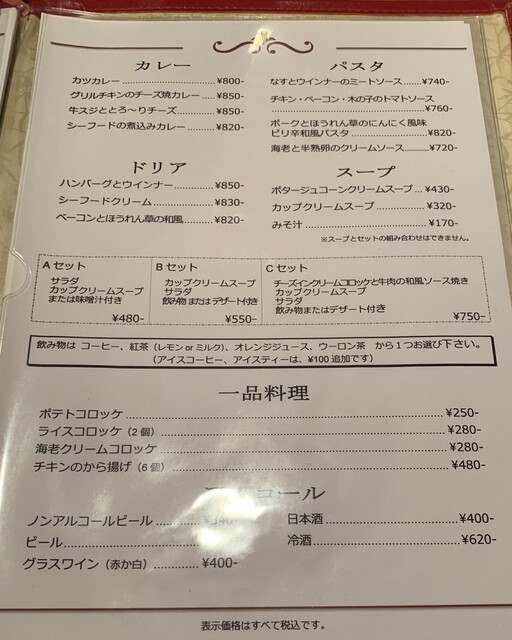 カレー
カツカレー ¥800-
グリルチキンのチーズ焼カレー ¥850-
牛スジととろ～りチーズ ¥850-
シーフードの煮込みカレー ¥820-
パスタ
なすとウインナーのミートソース ¥740-
チキン・ベーコン・木の子のトマトソース
¥760-
ポークとほうれん草のにんにく風味
ピリ辛和風パスタ ¥820-
海老と半熟卵のクリームソース ¥720-
ドリア
ハンバーグとウインナー ¥850-
シーフードクリーム ¥830-
ベーコンとほうれん草の和風 ¥820-
スープ
ポタージュコーンクリームスープ ¥430-
カップクリームスープ ¥320-
みそ汁 ¥170-
※スープとセットの組み合わせはできません。
Aセット
サラダ
カップクリームスープ
または味噌汁付き
¥480-
Bセット
カップクリームスープ
サラダ
飲み物またはデザート付き
¥550-
Cセット
チーズインクリームコロッケと牛肉の和風ソース焼き
カップクリームスープ
サラダ
飲み物またはデザート付き
¥750-
飲み物は コーヒー、紅茶（レモン or ミルク）、オレンジジュース、ウーロン茶 から１つお選び下さい。
（アイスコーヒー、アイスティーは、¥100 追加です）
一品料理
ポテトコロッケ ¥250-
ライスコロッケ（2 個） ¥280-
海老クリームコロッケ ¥280-
チキンのから揚げ（6 個） ¥480-
コール
ノンアルコールビール
ビール
グラスワイン（赤か白） ¥400-
日本酒 ¥400-
冷酒 ¥620-
表示価格はすべて税込です。